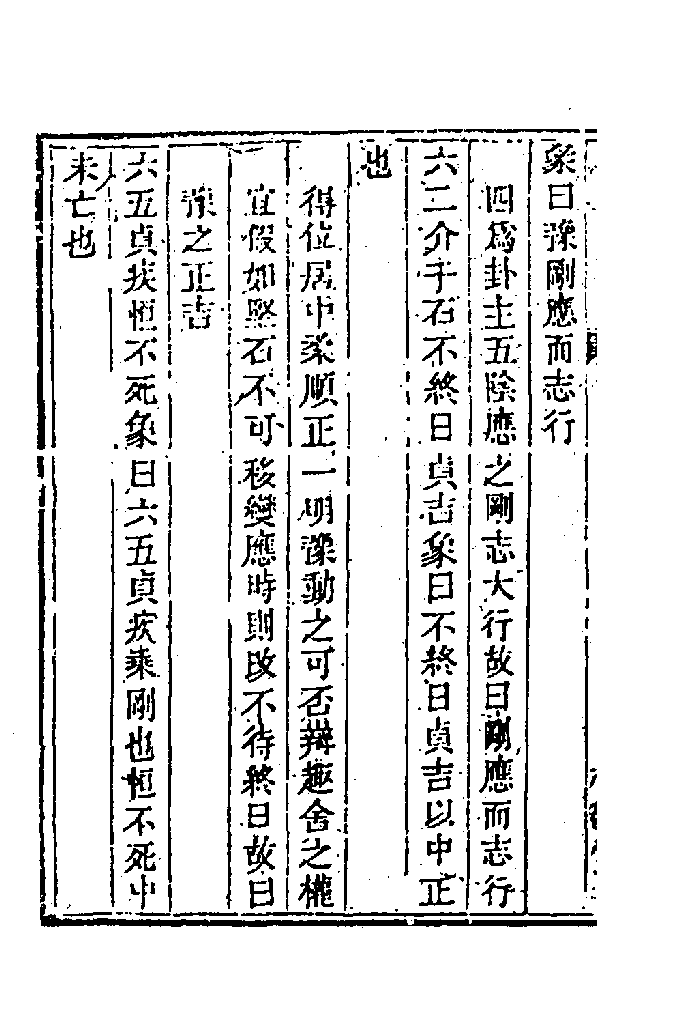 彖曰豫剛應而志行
四爲卦主五陰應之剛志大行故曰剛應而志行
六二介于石不終日貞吉象曰不終日貞吉以中正
也
得位居中柔順正一明豫動之可否辯趣舍之權
宜假如堅石不可移變應時則改不待終日故曰
豫之正吉
六五貞疾恒不死象曰六五貞疾乘剛也恒不死中
未亡也